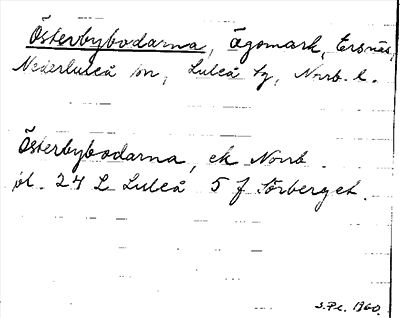 Österbybodarna, Ägomark, Ersnäs,
Nederluleå sn, Luleå tg, Norrb. l.
Österbybodarna, ek Norrb
bl. 24 L Luleå 5 f Sörberget.
S.Pc. 1960.